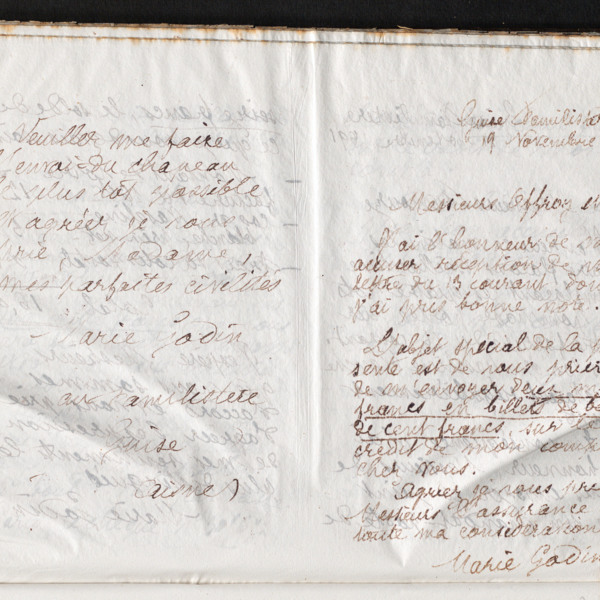 Veuillez me faire
l'envoi du chapeau
le plus tôt possible
et agréer je vous
prie, Madame,
mes parfaites civilités
Marie Godin
au Familistère
Guise
(Aisne)
Guise Familistère
19 Novembre
Messieurs Offroy et
J'ai l'honneur de
accuser réception de
lettre du 13 courant don
j'ai pris bonne note.
L'objet spécial de la
sente est de vous prier
de m'envoyer deux
francs en billets de
de cent francs, sur le
crédit de mon comp
chez vous.
Agréer je vous pri
Messieurs l'assurance de
toute ma considération
Marie Godin